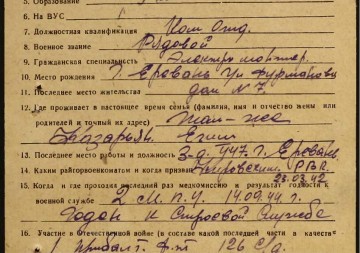 5. Образование
6. На ВУС
7. Должностная квалификация Ком. Отд.
8. Военное звание Рядовой
9. Гражданская специальность Электромонтер.
10. Место рождения г. Еревань ул. Фурманова
11. Последнее место жительства дом N 7.
12. Где проживает в настоящее время семья (фамилия, имя и отчество жены или
родителей и точный их адрес) там-же
Егиш
13. Последнее место работы и должность 3-д. 447. г. Еревань
14. Каким райгорвоенкоматом и когда призван Кировским Р.В.К.
23.03.42
15. Когда и где проходил последний раз медкомиссию и результат годности к
военной службе 2 М.П.У. 14.09.44 г.
Годен к строевой службе
16. Участие в Отечественной войне (в составе какой последней части в качестве
1 Прибалт. Ф-т 126 С/д.